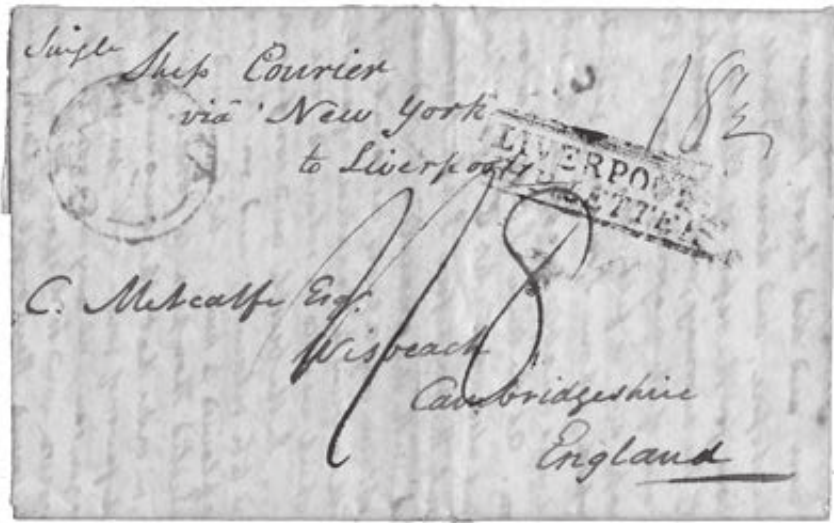 Single
Ship Courier
18½
via New York
to Liverpool
LIVERPOOL
LETTER
1/8
C. Metcalfe Esq.
Wisbeach
Cambridgeshire
England